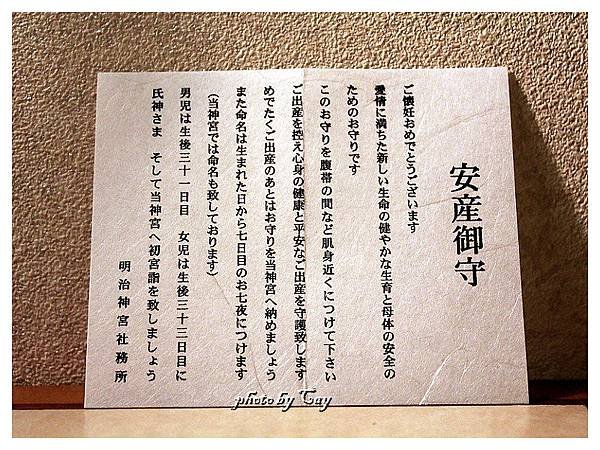 安産御守
ご懐妊おめでとうございます
愛情に満ちた新しい生命の健やかな生育と母体の安全の
ためのお守りです
このお守りを腹帯の間など肌身近くにつけて下さい
ご出産を控え心身の健康と平安なご出産を守護致します
めでたくご出産のあとはお守りを当神宮へ納めましょう
また命名は生まれた日から七日目のお七夜につけます
（当神宮では命名も致しております）
男児は生後三十一日目　女児は生後三十三日目に
氏神さま　そして当神宮へ初宮詣を致しましょう
明治神宮社務所
photo by Tay